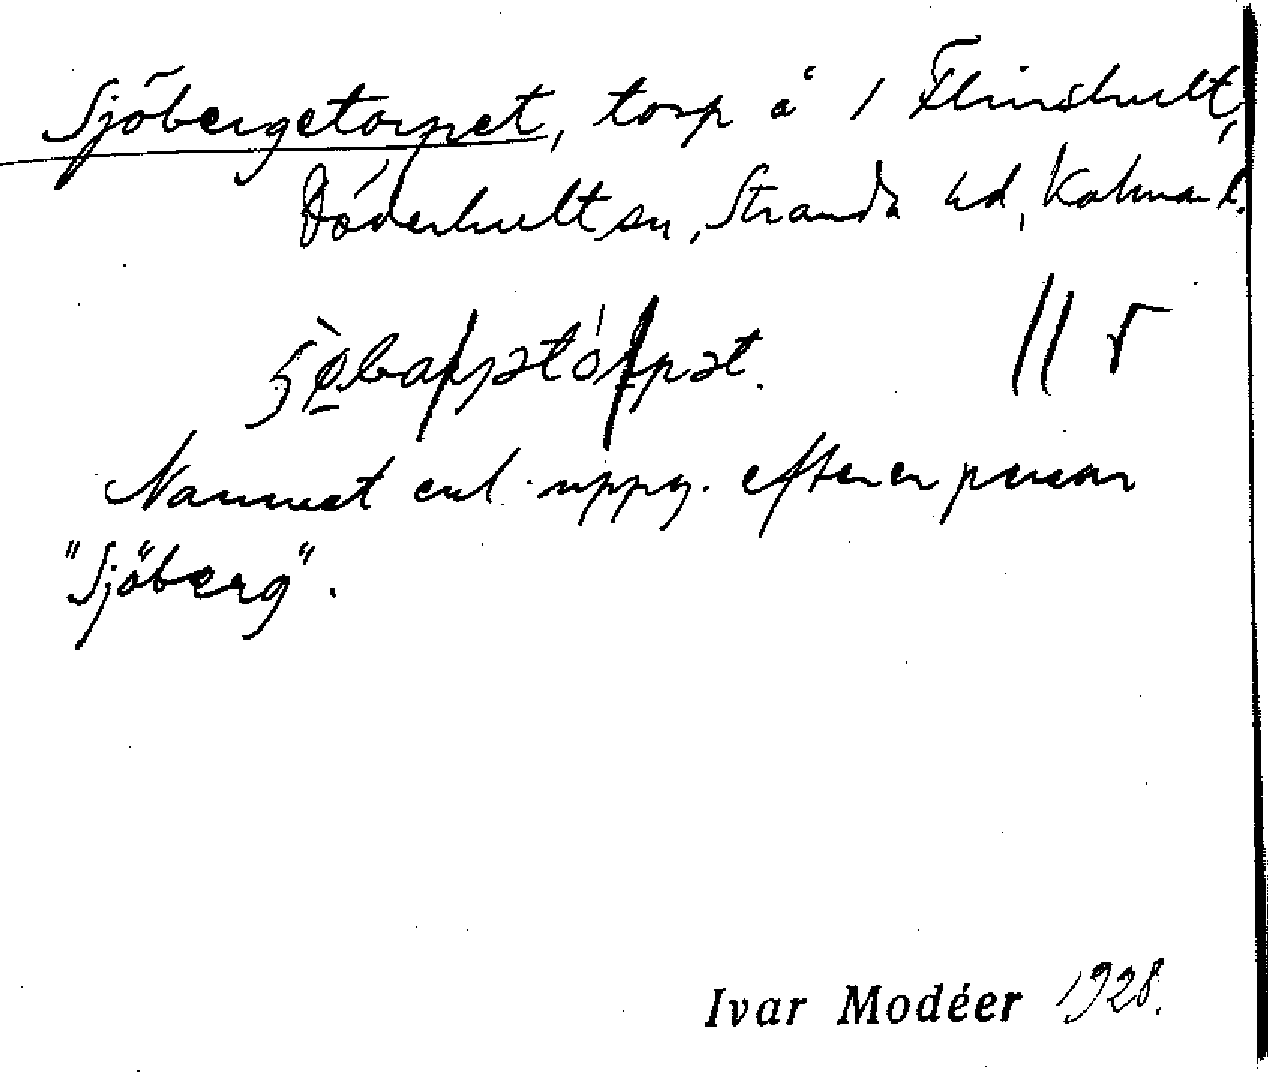 Sjöbergetorpet, torp å 1 Flinshult,
Döderhult sn, Stranda hd, Kalmar l.
Namnet enl. uppg. efter en person
"Sjöberg".
Ivar Modéer 1928.